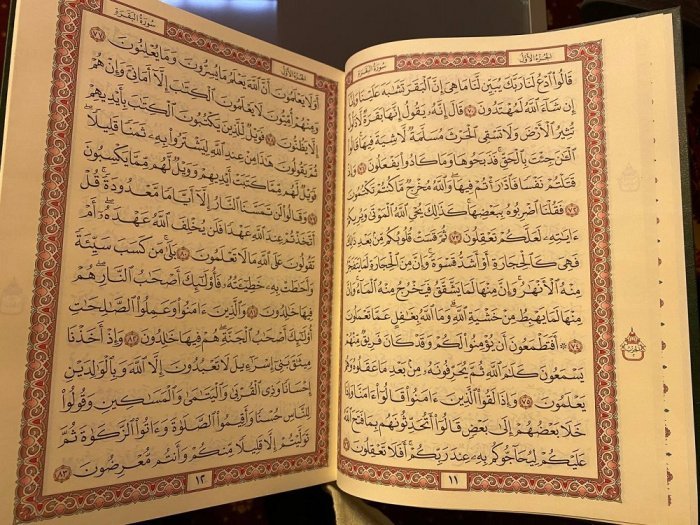 الجزء الأول
سورة البقرة
قَالُوا۟ ٱدْعُ لَنَا رَبَّكَ يُبَيِّن لَّنَا مَا هِىَ إِنَّ ٱلْبَقَرَ تَشَٰبَهَ عَلَيْنَا وَإِنَّآ
إِن شَآءَ ٱللَّهُ لَمُهْتَدُونَ ٧٠ قَالَ إِنَّهُۥ يَقُولُ إِنَّهَا بَقَرَةٌ لَّا ذَلُولٌ
تُثِيرُ ٱلْأَرْضَ وَلَا تَسْقِى ٱلْحَرْثَ مُسَلَّمَةٌ لَّا شِيَةَ فِيهَا قَالُوا۟
ٱلْـَٰٔنَ جِئْتَ بِٱلْحَقِّ فَذَبَحُوهَا وَمَا كَادُوا۟ يَفْعَلُونَ ٧١ وَإِذْ
قَتَلْتُمْ نَفْسًا فَٱدَّٰرَْٰٔتُمْ فِيهَا وَٱللَّهُ مُخْرِجٌ مَّا كُنتُمْ تَكْتُمُونَ ٧٢
فَقُلْنَا ٱضْرِبُوهُ بِبَعْضِهَا كَذَٰلِكَ يُحْىِ ٱللَّهُ ٱلْمَوْتَىٰ وَيُرِيكُمْ
ءَايَٰتِهِۦ لَعَلَّكُمْ تَعْقِلُونَ ٧٣ ثُمَّ قَسَتْ قُلُوبُكُم مِّنۢ بَعْدِ ذَٰلِكَ
فَهِىَ كَٱلْحِجَارَةِ أَوْ أَشَدُّ قَسْوَةً وَإِنَّ مِنَ ٱلْحِجَارَةِ لَمَا يَتَفَجَّرُ
مِنْهُ ٱلْأَنْهَٰرُ وَإِنَّ مِنْهَا لَمَا يَشَّقَّقُ فَيَخْرُجُ مِنْهُ ٱلْمَآءُ وَإِنَّ
مِنْهَا لَمَا يَهْبِطُ مِنْ خَشْيَةِ ٱللَّهِ وَمَا ٱللَّهُ بِغَٰفِلٍ عَمَّا تَعْمَلُونَ
٧٤ ۞ أَفَتَطْمَعُونَ أَن يُؤْمِنُوا۟ لَكُمْ وَقَدْ كَانَ فَرِيقٌ مِّنْهُمْ
يَسْمَعُونَ كَلَٰمَ ٱللَّهِ ثُمَّ يُحَرِّفُونَهُۥ مِنۢ بَعْدِ مَا عَقَلُوهُ وَهُمْ
يَعْلَمُونَ ٧٥ وَإِذَا لَقُوا۟ ٱلَّذِينَ ءَامَنُوا۟ قَالُوٓا۟ ءَامَنَّا وَإِذَا
خَلَا بَعْضُهُمْ إِلَىٰ بَعْضٍ قَالُوٓا۟ أَتُحَدِّثُونَهُم بِمَا فَتَحَ ٱللَّهُ
عَلَيْكُمْ لِيُحَآجُّوكُم بِهِۦ عِندَ رَبِّكُمْ أَفَلَا تَعْقِلُونَ ٧٦
١١
الجزء الأول
سورة البقرة
أَوَلَا يَعْلَمُونَ أَنَّ ٱللَّهَ يَعْلَمُ مَا يُسِرُّونَ وَمَا يُعْلِنُونَ ٧٧
وَمِنْهُمْ أُمِّيُّونَ لَا يَعْلَمُونَ ٱلْكِتَٰبَ إِلَّآ أَمَانِىَّ وَإِنْ هُمْ
إِلَّا يَظُنُّونَ ٧٨ فَوَيْلٌ لِّلَّذِينَ يَكْتُبُونَ ٱلْكِتَٰبَ بِأَيْدِيهِمْ
ثُمَّ يَقُولُونَ هَٰذَا مِنْ عِندِ ٱللَّهِ لِيَشْتَرُوا۟ بِهِۦ ثَمَنًا قَلِيلًا
فَوَيْلٌ لَّهُم مِّمَّا كَتَبَتْ أَيْدِيهِمْ وَوَيْلٌ لَّهُم مِّمَّا يَكْسِبُونَ
٧٩ وَقَالُوا۟ لَن تَمَسَّنَا ٱلنَّارُ إِلَّآ أَيَّامًا مَّعْدُودَةً قُلْ
أَتَّخَذْتُمْ عِندَ ٱللَّهِ عَهْدًا فَلَن يُخْلِفَ ٱللَّهُ عَهْدَهُۥٓ أَمْ
تَقُولُونَ عَلَى ٱللَّهِ مَا لَا تَعْلَمُونَ ٨٠ بَلَىٰ مَن كَسَبَ سَيِّئَةً
وَأَحَٰطَتْ بِهِۦ خَطِيٓـَٔتُهُۥ فَأُو۟لَٰٓئِكَ أَصْحَٰبُ ٱلنَّارِ هُمْ
فِيهَا خَٰلِدُونَ ٨١ وَٱلَّذِينَ ءَامَنُوا۟ وَعَمِلُوا۟ ٱلصَّٰلِحَٰتِ
أُو۟لَٰٓئِكَ أَصْحَٰبُ ٱلْجَنَّةِ هُمْ فِيهَا خَٰلِدُونَ ٨٢ وَإِذْ أَخَذْنَا
مِيثَٰقَ بَنِىٓ إِسْرَٰٓءِيلَ لَا تَعْبُدُونَ إِلَّا ٱللَّهَ وَبِٱلْوَٰلِدَيْنِ
إِحْسَانًا وَذِى ٱلْقُرْبَىٰ وَٱلْيَتَٰمَىٰ وَٱلْمَسَٰكِينِ وَقُولُوا۟
لِلنَّاسِ حُسْنًا وَأَقِيمُوا۟ ٱلصَّلَوٰةَ وَءَاتُوا۟ ٱلزَّكَوٰةَ ثُمَّ
تَوَلَّيْتُمْ إِلَّا قَلِيلًا مِّنكُمْ وَأَنتُم مُّعْرِضُونَ ٨٣
١٢